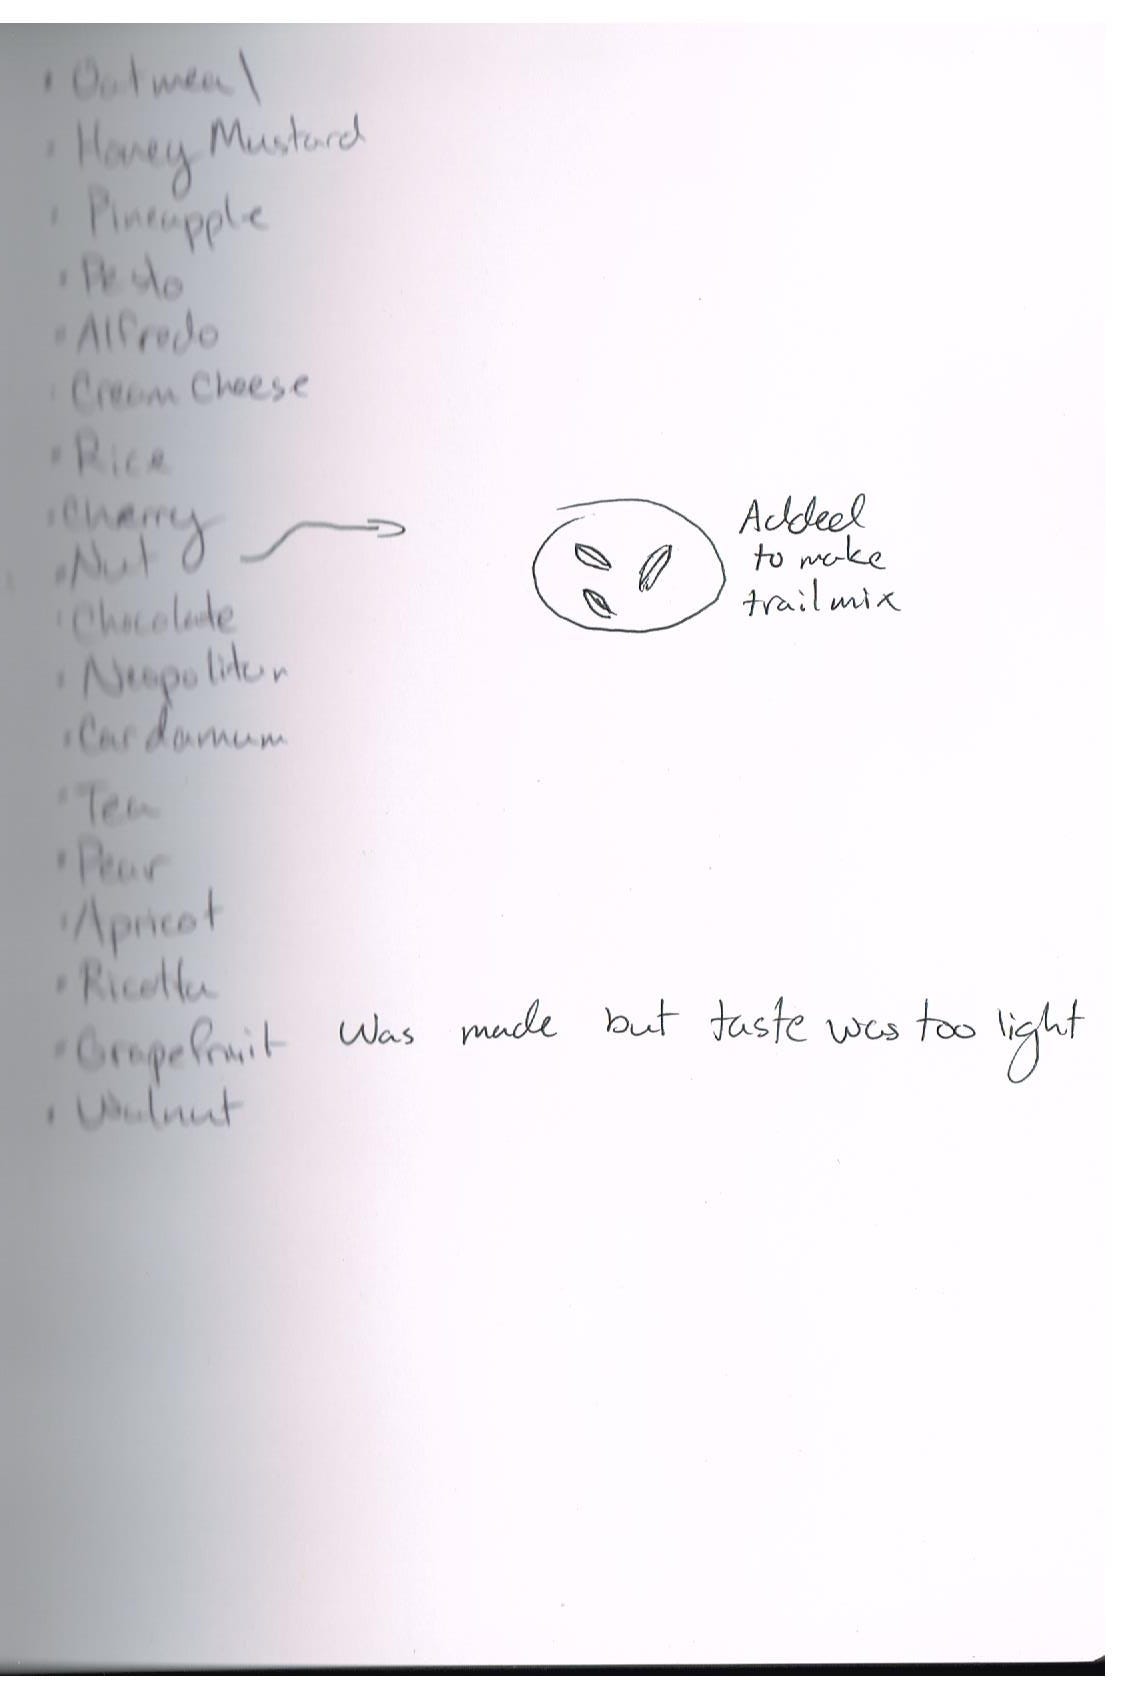 • Oatmeal
• Honey Mustard
• Pineapple
• Pesto
• Alfredo
• Cream Cheese
• Rice
• Cherry
• Nut
Added
to make
trail mix
• Chocolate
• Neapoliton
• Cardamum
• Tea
• Pear
• Apricot
• Ricotta
• Grapefruit Was made but taste was too light
• Walnut